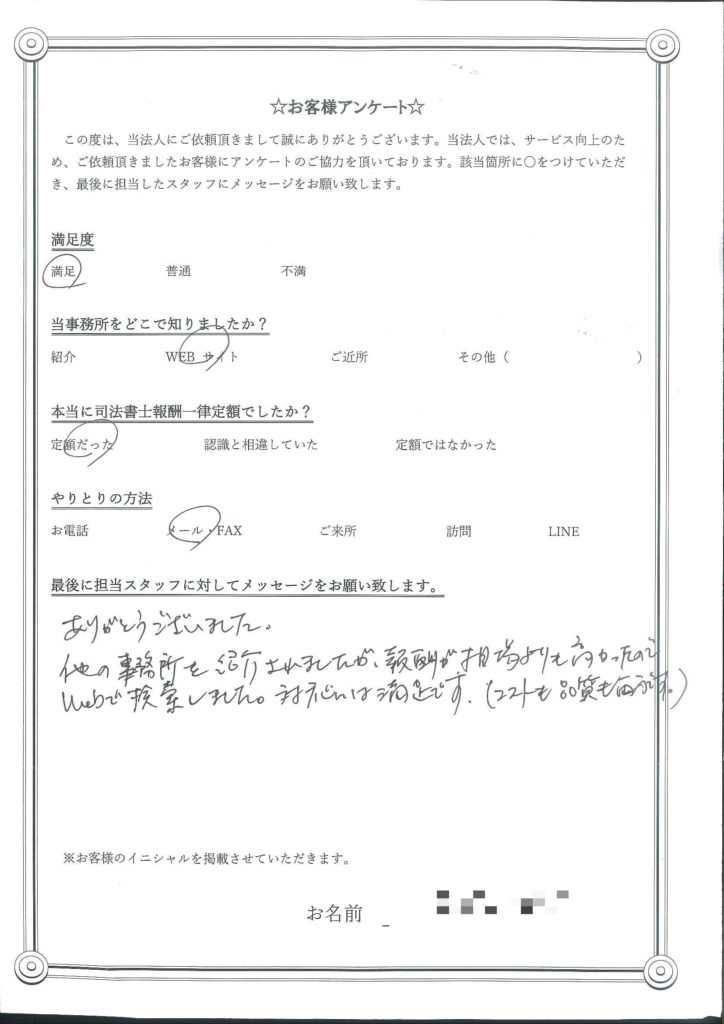 ☆お客様アンケート☆
この度は、当法人にご依頼頂きまして誠にありがとうございます。当法人では、サービス向上のた
め、ご依頼頂きましたお客様にアンケートのご協力を頂いております。該当箇所に〇をつけていただ
き、最後に担当したスタッフにメッセージをお願い致します。
満足度
満足 普通 不満
当事務所をどこで知りましたか？
紹介 WEB サイト ご近所 その他（ ）
本当に司法書士報酬一律定額でしたか？
定額だった 認識と相違していた 定額ではなかった
やりとりの方法
お電話 メール・FAX ご来所 訪問 LINE
最後に担当スタッフに対してメッセージをお願い致します。
ありがとうございました。
他の事務所を紹介されましたが、報酬が相場よりも高かったので
Webで検索しました。対応には満足です。（コストも品質も両方です。）
※お客様のイニシャルを掲載させていただきます。
お名前